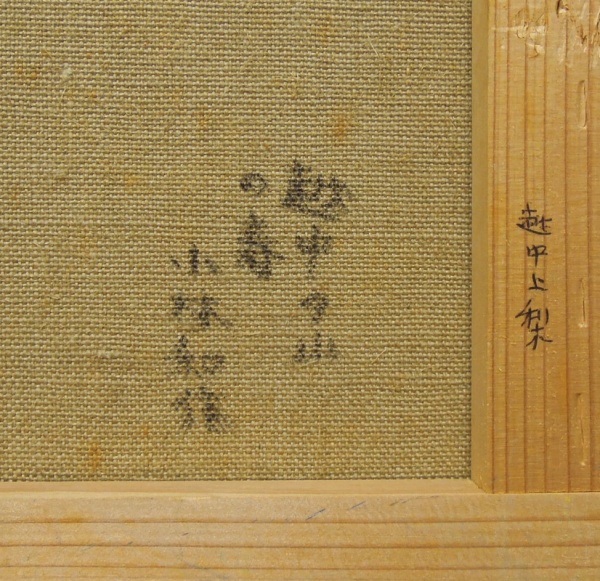 越中上梨
越中の山
の春
小林和作